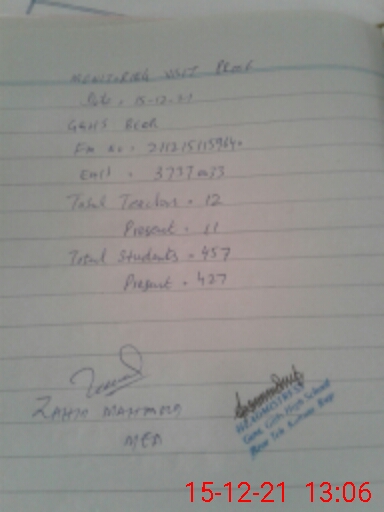 MONITORING VISIT PROOF
Date = 15-12-21
GGHS BEOR
EMIS = 37370033
Total Teachers = 12
Present = 11
Total Students = 457
Present = 427
ZAHID MAHMOOD
MEA
HEADMISTRESS
Govt. Girls High School
15-12-21 13:06